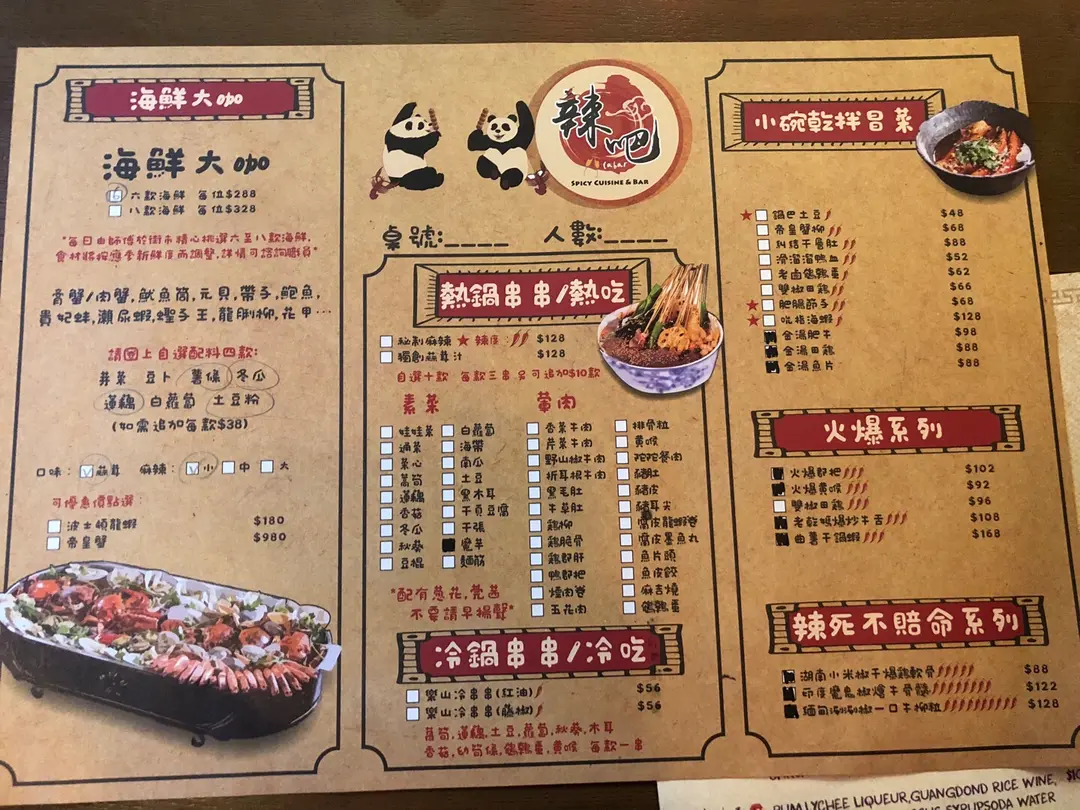 海鮮大咖
海鮮大咖
六款海鮮 每位$288
八款海鮮 每位$328
"每日由師傅於街市精心挑選六至八款海鮮,
食材將按應季新鮮度而調整,詳情可諮詢職員"
膏蟹/肉蟹,魷魚筒,元貝,帶子,鮑魚,
貴妃蚌,瀨尿蝦,蟶子王,龍脷柳,花甲…
請圈上自選配料四款:
芽菜 豆卜 薯條 冬瓜
蓮藕 白蘿蔔 土豆粉
(如需追加每款$38)
口味: 蒜茸 麻辣: 小 中 大
可優惠價點選:
波士頓龍蝦 $180
帝皇蟹 $980
辣吧
Labar
SPICY CUISINE & BAR
桌號:____ 人數:____
熱鍋串串/熱吃
秘制麻辣 辣度: $128
獨創蒜茸汁 $128
自選十款 每款三串 另可追加$10款
素菜
娃娃菜
通菜
菜心
萵筍
蓮藕
香菇
冬瓜
秋葵
豆棍
白蘿蔔
海帶
南瓜
土豆
黑木耳
千頁豆腐
千張
魔芋
麵筋
葷肉
香菜牛肉
芹菜牛肉
野山椒牛肉
折耳根牛肉
黑毛肚
牛草肚
雞柳
雞脆骨
雞郡肝
鴨郡把
煙肉卷
五花肉
排骨粒
黃喉
豬肚
豬皮
豬耳尖
腐皮龍蝦卷
腐皮墨魚丸
魚片頭
魚皮餃
麻吉燒
鵪鶉蛋
"配有蔥花,芫茜
不要請早揚聲"
冷鍋串串/冷吃
樂山冷串串(紅油) $56
樂山冷串串(藤椒) $56
萵筍,蓮藕,土豆,蘿蔔,秋葵,木耳
香菇,幼筍條,鵪鶉蛋,黃喉 每款一串
小碗乾拌冒菜
鍋巴土豆 $48
帝皇蟹柳 $68
糾結千層肚 $88
滑溜溜鴨血 $52
老鹵鵪鶉蛋 $62
雙椒田雞 $66
肥腸節子 $68
吮指海蝦 $128
金湯肥牛 $98
金湯田雞 $88
金湯魚片 $88
火爆系列
火爆郡把 $102
火爆黃喉 $92
雙椒田雞 $96
老乾媽爆炒牛舌 $108
曲薯干鍋蝦 $168
辣死不賠命系列
湖南小米椒干爆雞軟骨 $88
印度魔鬼椒燴牛骨髓 $122
緬甸涮涮椒一口牛柳粒 $128
RUM,LYCHEE LIQUEUR,GUANGDOND RICE WINE,
SYRUP,SODA WATER